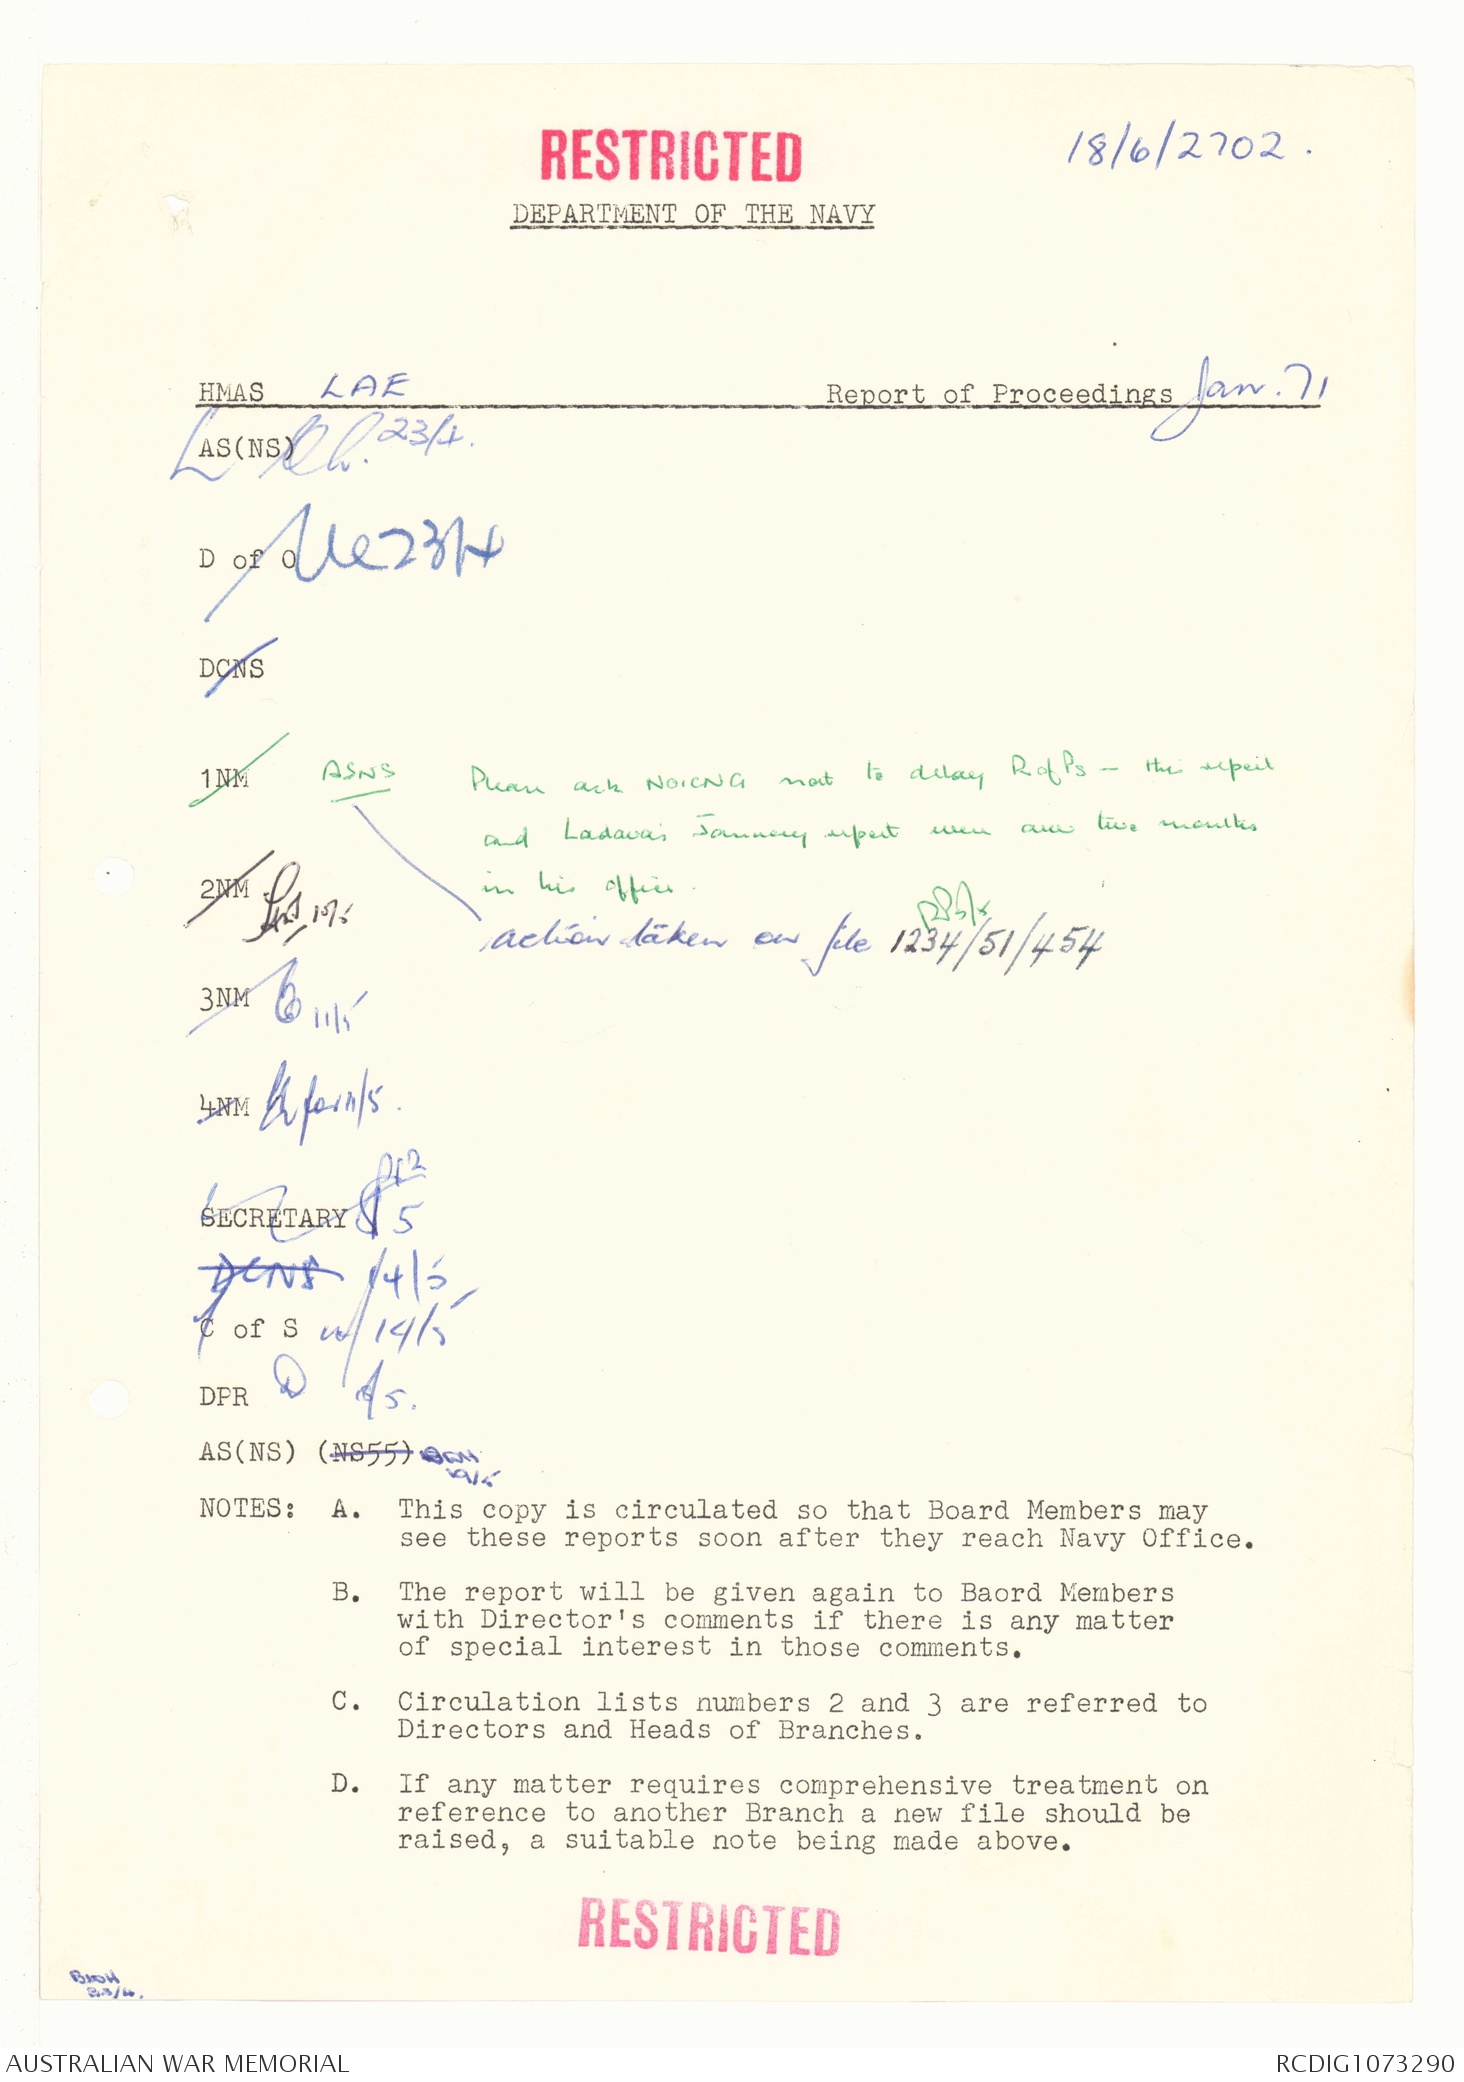 RESTRICTED
18/6/2702.
DEPARTMENT OF THE NAVY
HMAS LAE Report of Proceedings Jan. 71
AS(NS) 23/4.
D of O 23/4
DCNS
1NM ASNS Please ask NOICNG not to delay RofPs - this report
and Ladava's January report were over two months
in his office.
2NM 10/5
action taken on file 1234/51/454
3NM 11/5
4NM 11/5.
SECRETARY 5
DCNS 14/5
C of S 14/5
DPR /5.
AS(NS) (NS55)
NOTES: A. This copy is circulated so that Board Members may
see these reports soon after they reach Navy Office.
B. The report will be given again to Baord Members
with Director's comments if there is any matter
of special interest in those comments.
C. Circulation lists numbers 2 and 3 are referred to
Directors and Heads of Branches.
D. If any matter requires comprehensive treatment on
reference to another Branch a new file should be
raised, a suitable note being made above.
RESTRICTED
23/4.
AUSTRALIAN WAR MEMORIAL
RCDIG1073290